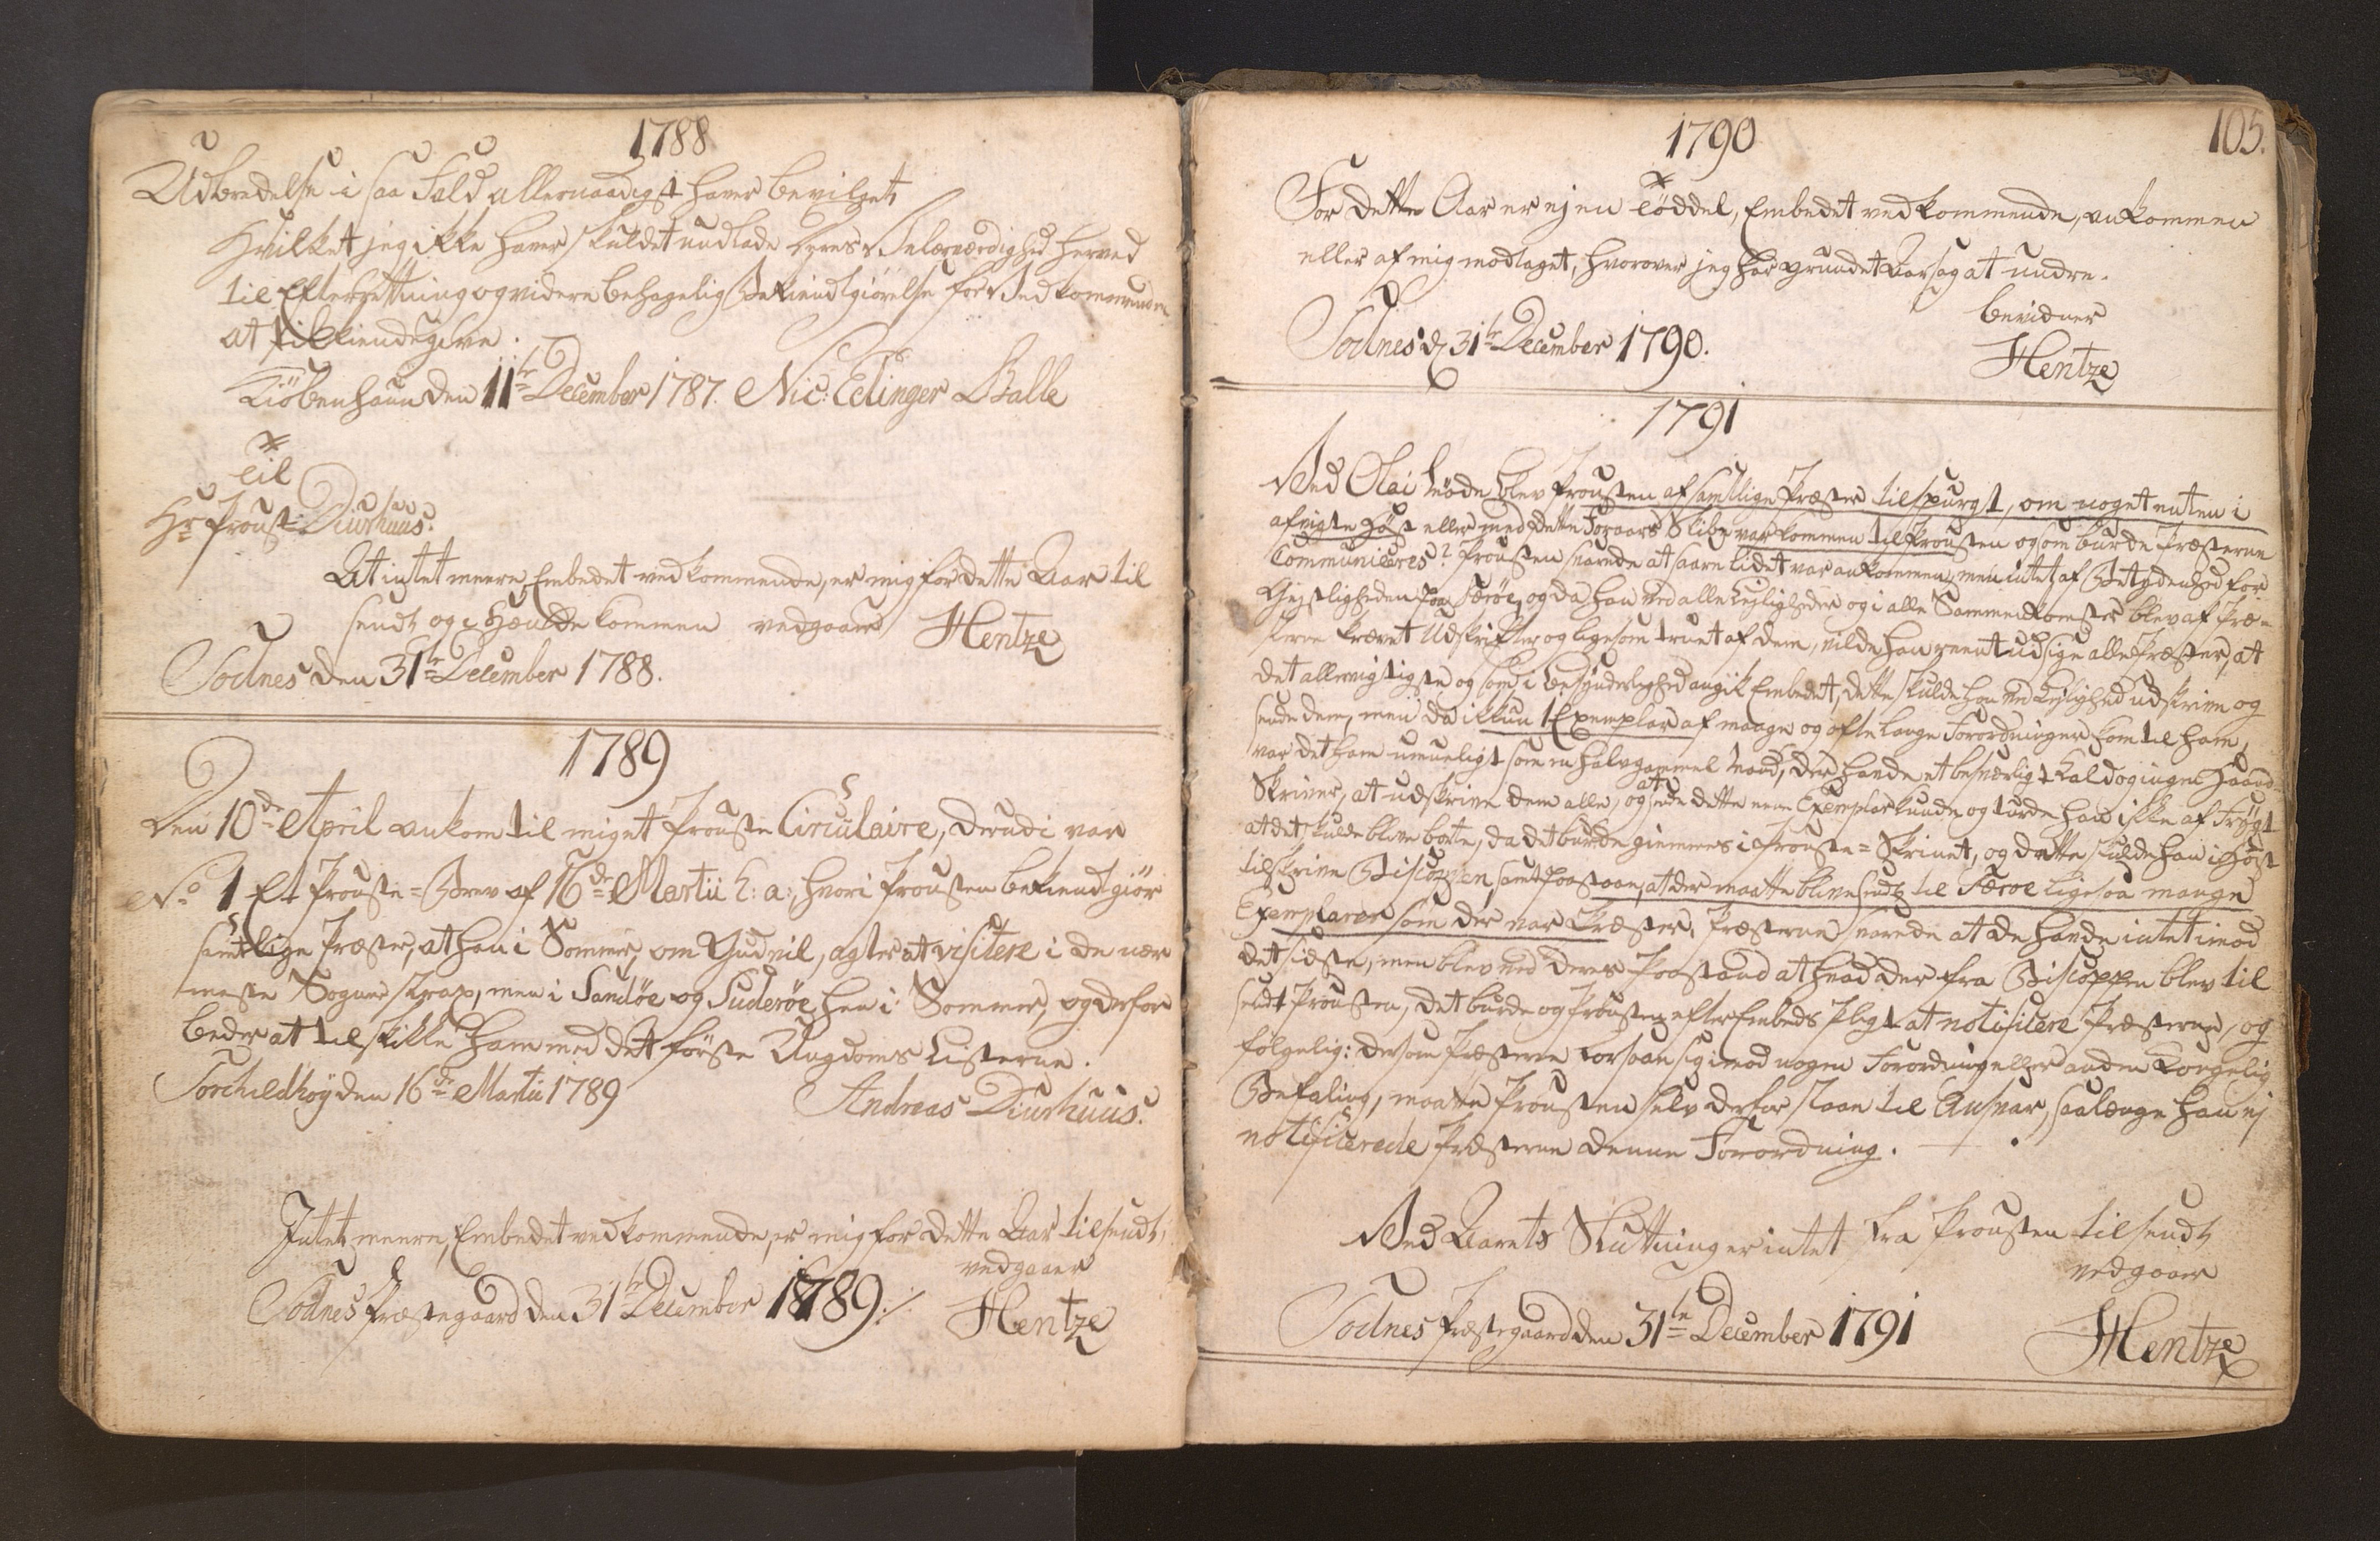 1788
Udbredelse i saa Fald allernaadigst haver bevilget,
Hvilket jeg ikke haver skuldet undlade Deres Velærværdighed herved
til Efterretning og videre behagelig Bekiendtgiørelse for Vedkommende
at tilkiendegive.
Kiöbenhaun den 11te December 1787. Nic: Edinger Balle
Til
Hr Proust Diurhuus.
At intet meere, Embedet vedkommende, er mig for dette Aar til
sendt og i Hænde kommen vedgaaer Hentze
Sodnes den 31te December 1788.
1789
Den 10de April ankom til mig et Prouste Circulaire, derudi var
No 1 Et Prouste-Brev af 16de Martii h: a:, hvori Prousten bekiendtgiör
samtlige Præster, at han i Sommer, om Gud vil, agter at visitere i de nær
meste Sogne skrap, men i Sandöe og Suderöe hen i Sommer, og derfor
beder at tilskikke ham med det förste Ungdoms Listerne.
Torchildhöy den 16de Martii 1789 Andreas Diurhuus.
Intet meere, Embedet vedkommende, er mig for dette Aar tilsendt,
vedgaaer
Sodnes Præstegaard den 31te December 1789./. Hentze
105.
1790
For dette Aar er ej en Töddel, Embedet vedkommende, ankommen
eller af mig modtaget, hvorover jeg har grundet Aarsag at undre.
bevidner
Sodnes d 31te December 1790.
Hentze
1791
Ved Olai Möde blev Prousten af samtlige Præster tilspurgt, om noget enten i
afvigte Höst eller med dette Foraars Skibe var kommen til Prousten og som burde Præsterne
Communiceres? Prousten svarede at saare lidet var ankommen, men intet af Betydenhed for
Gejstligheden paa Færöe, og da han ved alle Lejligheder og i alle Sammenkomster blev af Præ-
sterne krævet Udskrifter og ligesom truet af dem, vilde han reent udsige alle Præster, at
det allervigtigste og som i Besynderlighed angik Embedet, dette skulde han ved Lejlighed udskrive og
sende dem, men da ikkun 1 Exemplar af mange og ofte lange Forordninger kom til ham,
var det ham umueligt som en halvgammel Mand, der havde et besværligt Kald og ingen Haand
Skriver, at udskrive dem alle, og at sende dette ene Exemplar kunde og turde han ikke af Frögt
at det skulde blive borte, da det burde giemmes i Prouste-Skrinet, og dette skulde han i Höst
tilskrive Biscoppen, samt paastaae, at der maatte blive sendt til Færöe ligesaa mange
Exemplarer som der var Præster. Præsterne svarede at de havde intet imod
det sidste, men blev ved deres Paastand at hvad der fra Biscoppen blev til
sendt Prousten, det burde og Prousten efter Embeds Pligt at notificere Præsterne, og
fölgelig: dersom Præsterne forsaae sig imod nogen Forordning eller anden Kongelig
Befaling, maatte Prousten selv derfor staae til Ansvar, saalænge han ej
notificerede Præsterne denne Forordning.
Ved Aarets Sluttning er intet fra Prousten tilsendt,
vedgaaer
Sodnes Præstegaard den 31te December 1791
Hentze